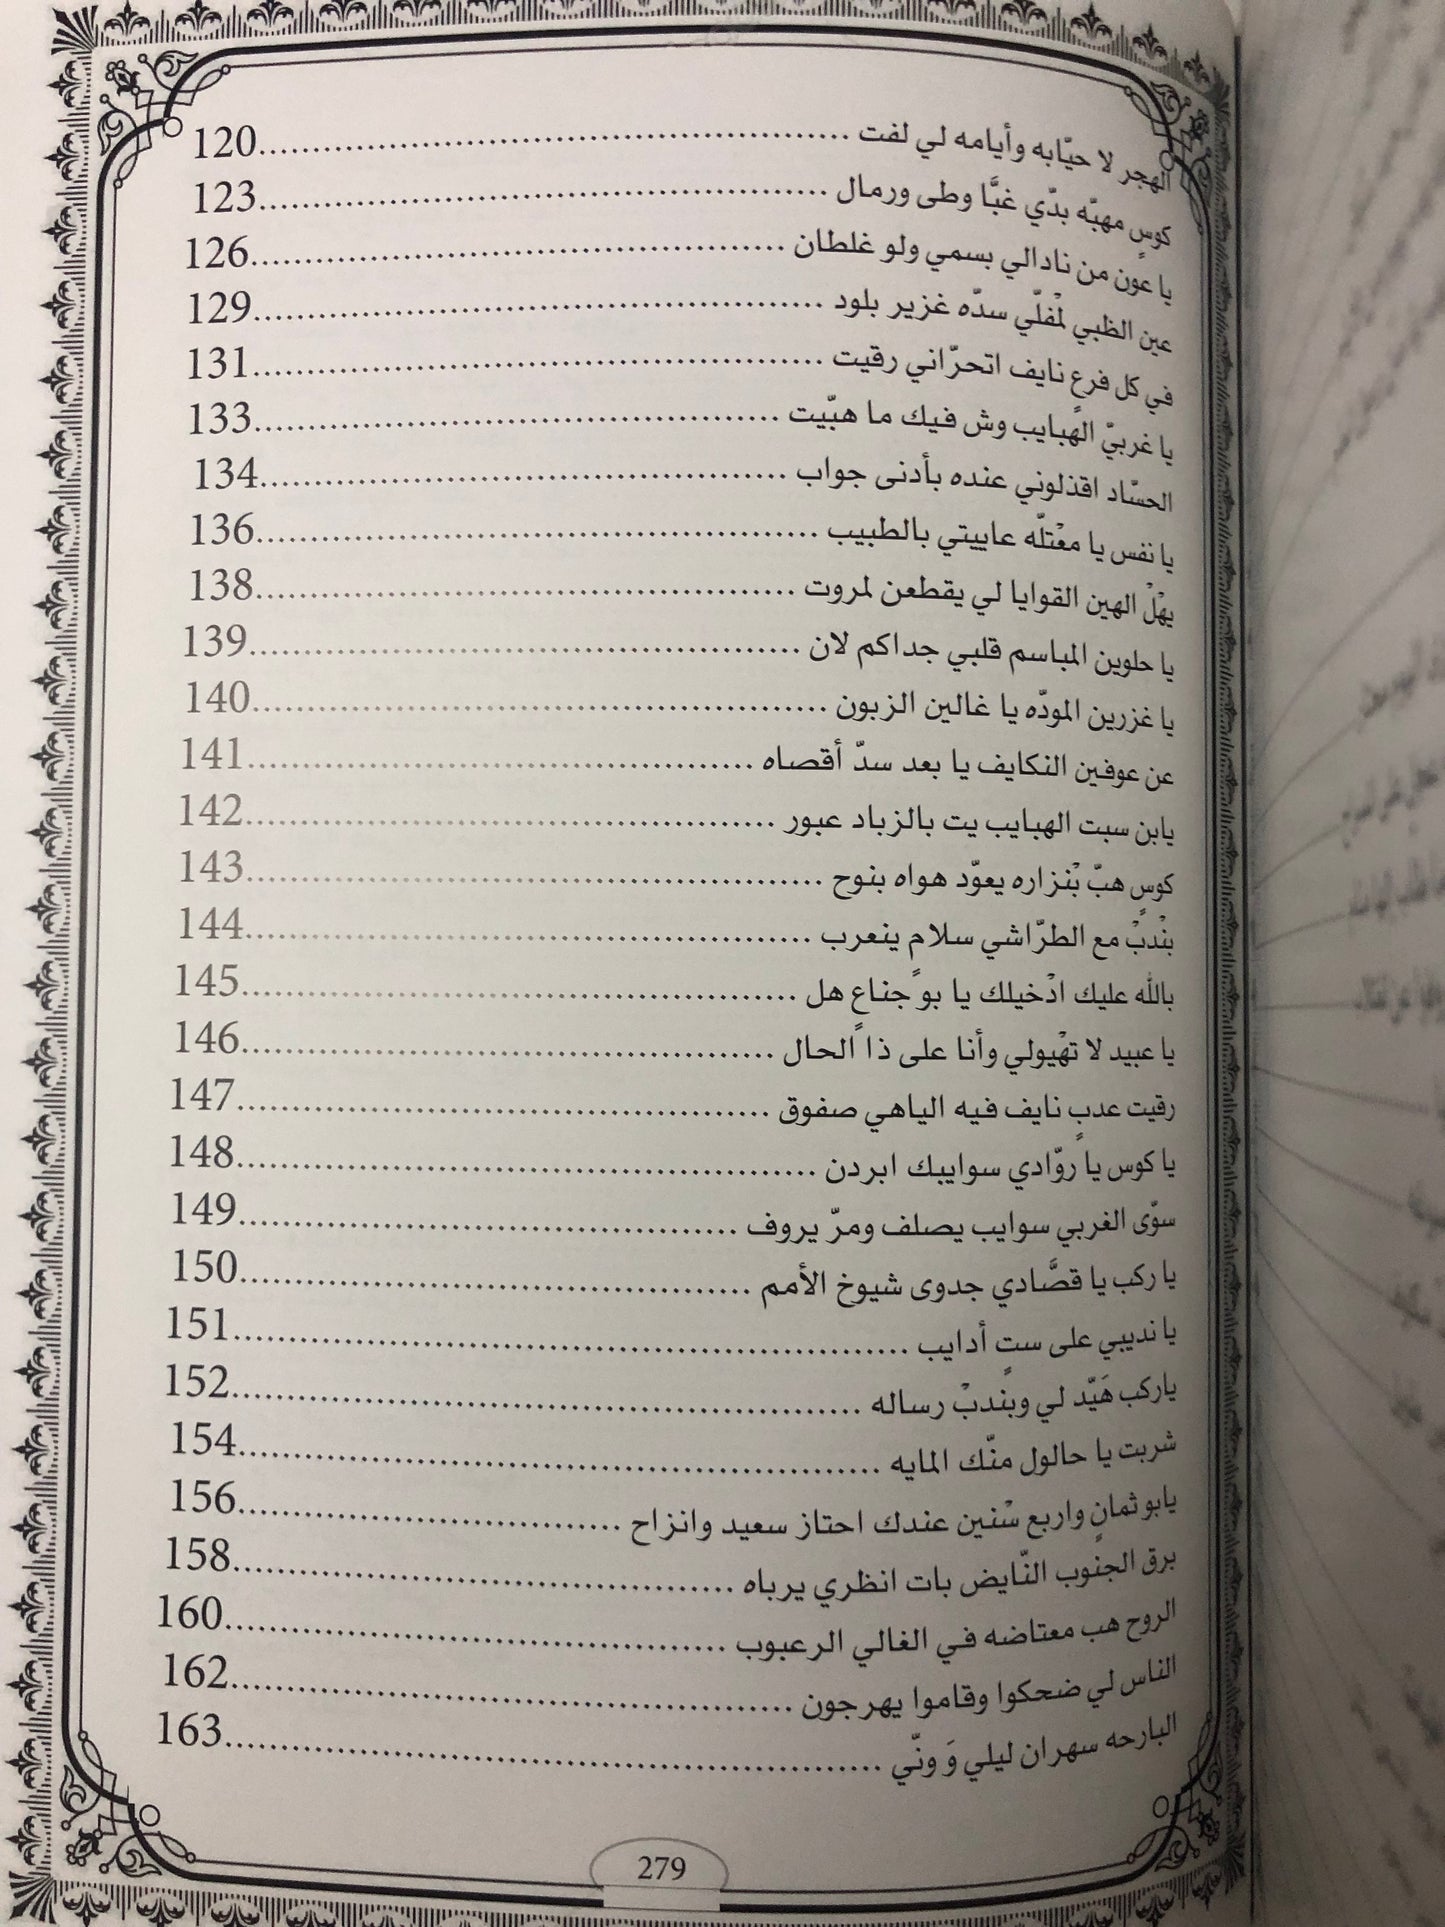 الهجر لا حيّابه وأيامه لي لفت ........ 120
كوسٍ مهبّه بدّي غبَّا وطى ورمال ........ 123
يا عون من نادالي بسمي ولو غلطان ........ 126
عين الظبي لمْفلّي سدّه غزير بلود ........ 129
في كل فرعٍ نايف اتحرّاني رقيت ........ 131
يا غربيّ الهبايب وش فيك ما هبّيت ........ 133
الحسّاد اقذلوني عنده بأدنى جواب ........ 134
يا نفس يا معْتلّه عاييتي بالطبيب ........ 136
يهْلْ الهين القوايا لي يقطعن لمروت ........ 138
يا حلوين المباسم قلبي جداكم لان ........ 139
يا غزرين المودّه يا غالين الزبون ........ 140
عن عوفين النكايف يا بعد سدّ أقصاه ........ 141
يابن سبت الهبايب يت بالزباد عبور ........ 142
كوسٍ هبّ بْنزاره يعوّد هواه بنوح ........ 143
بنْدبْ مع الطرّاشي سلامٍ ينعرب ........ 144
بالله عليك ادْخيلك يا بو جناعٍ هل ........ 145
يا عبيد لا تهْيولي وأنا على ذا الحال ........ 146
رقيت عدبٍ نايف فيه الياهي صفوق ........ 147
يا كوس يا روّادي سوايبك ابردن ........ 148
سوّى الغربي سوايب يصلف ومرّ يروف ........ 149
يا ركب يا قصَّادي جدوى شيوخ الأمم ........ 150
يا نديبي على ستٍ أدايب ........ 151
ياركب هَيّد لي وبندبْ رساله ........ 152
شربت يا حالول منّك المايه ........ 154
يابو ثمانٍ واربع سْنين عندك احتاز سعيد وانزاح ........ 156
برق الجنوب النّايض بات انظري يرباه ........ 158
الروح هب معتاضه في الغالي الرعبوب ........ 160
الناس لي ضحكوا وقاموا يهرجون ........ 162
البارحه سهران ليلي وَ ونّي ........ 163
279